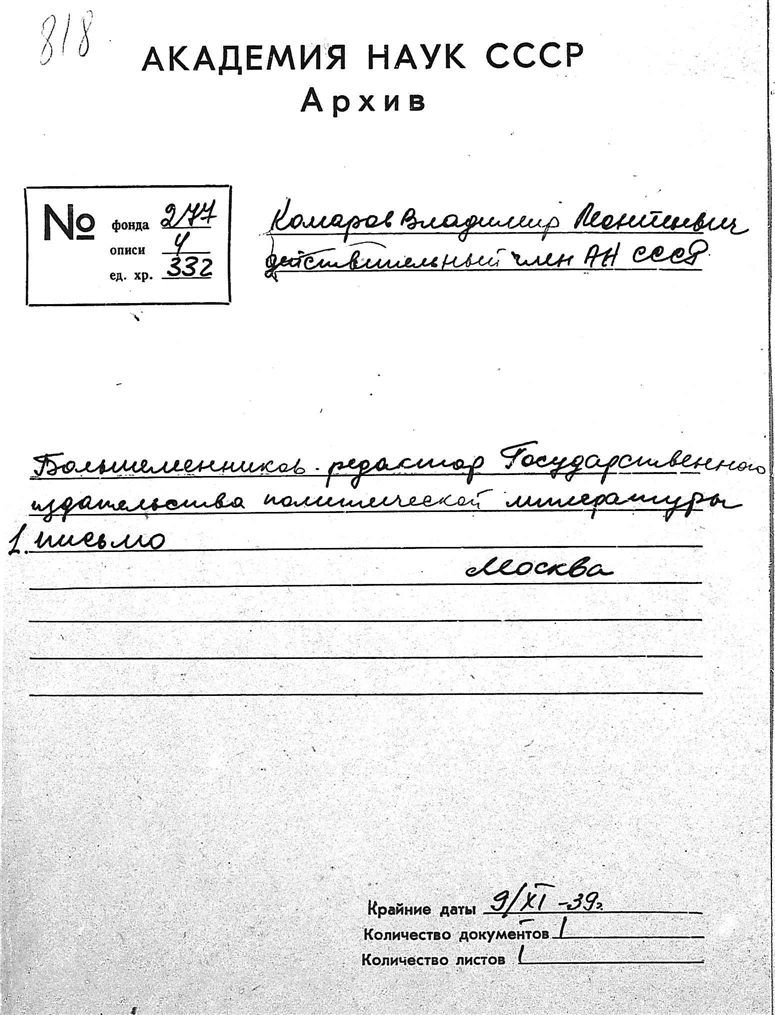 818
АКАДЕМИЯ НАУК СССР
Архив
№ фонда 277
описи 4
ед. хр. 332
Комаров Владимир Леонтьевич
действительный член АН СССР
Большеменников - редактор Государственного
издательства политической литературы
1 письмо
Москва
Крайние даты 9/XI -39г.
Количество документов 1
Количество листов 1